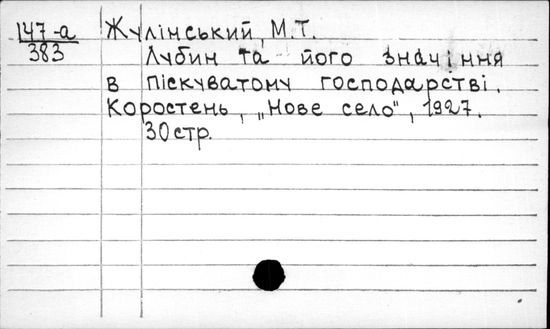 147-а Жулінський, М.Т.
383
Лубин та його значіння
в піскуватому господарстві.
Коростень, „Нове село", 1927.
30 стр.